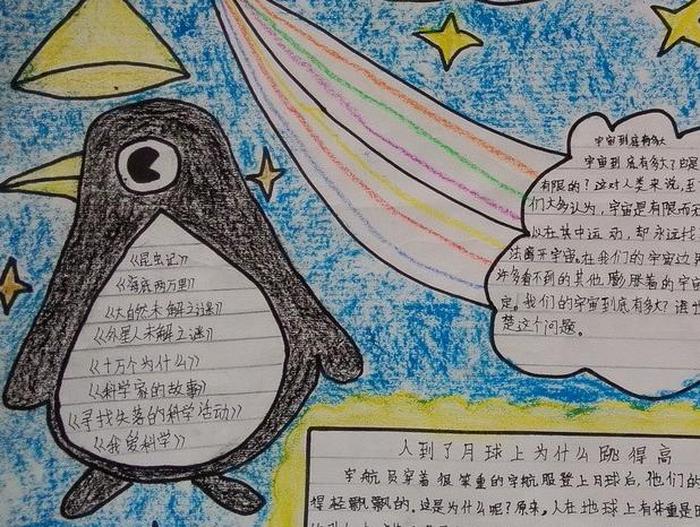 《昆虫记》
《海底两万里》
《大自然未解之谜》
《外星人未解之谜》
《十万个为什么》
《科学家的故事》
《寻找失落的科学活动》
《我爱科学》
宇宙到底有多大
宇宙到底有多大?
有限的?这对人类来说,至
们大多认为,宇宙是有限而无
以在其中运动,却永远找
法离开宇宙。在我们的宇宙边界
许多看不到的其他膨胀着的宇宙
定。我们的宇宙到底有多大?谁
楚这个问题。
人到了月球上为什么跳得高
宇航员穿着很笨重的宇航服登上月球后,他们的
得轻飘飘的。这是为什么呢?原来,人在地球上有体重是